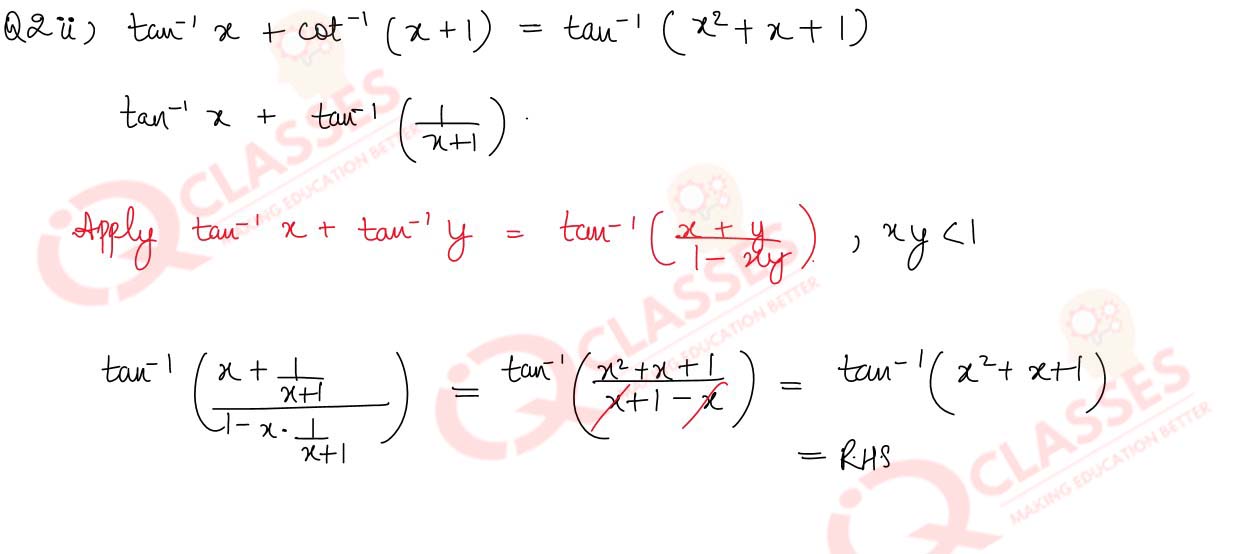 Q2 ii) tan⁻¹ x + cot⁻¹ (x+1) = tan⁻¹ (x² + x + 1)
tan⁻¹ x + tan⁻¹ (1/(x+1)) .
Apply tan⁻¹ x + tan⁻¹ y = tan⁻¹ ((x + y)/(1 - xy)) , xy < 1
tan⁻¹ ((x + 1/(x+1))/(1 - x · 1/(x+1))) = tan⁻¹ ((x² + x + 1)/(x + 1 - x)) = tan⁻¹ (x² + x + 1)
= RHS
IQ CLASSES
MAKING EDUCATION BETTER
IQ CLASSES
MAKING EDUCATION BETTER
IQ CLASSES
MAKING EDUCATION BETTER